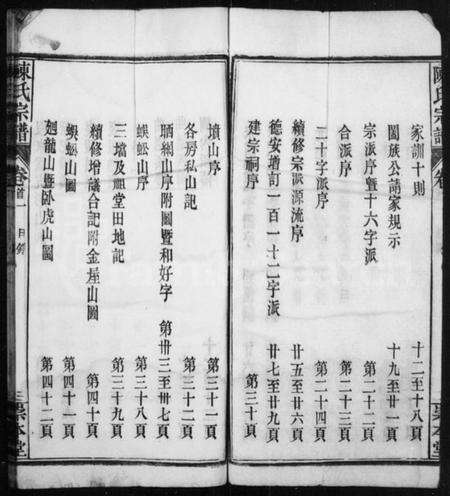 陳氏宗譜 卷
家訓十則 十二至十八頁
闔族公請家規示 十九至廿一頁
宗派序暨十六字派 第二十二頁
合派序 第二十三頁
二十字派序 第二十四頁
續修宗派源流序 廿五至廿六頁
德安增訂一百一十二字派 廿七至廿九頁
建宗祠序 第三十頁
墳山序 第三十一頁
各房私山記 第三十二頁
晒網山序附圖暨和好字 第卅三至卅七頁
蜈蚣山序 第三十八頁
三及祖堂田地記 第三十九頁
續修增議合記附金星山圖 第四十頁
蜈蚣山圖 第四十一頁
廻龍山暨臥虎山圖 第四十二頁
陳氏宗譜 卷首一 目錄 三 本堂